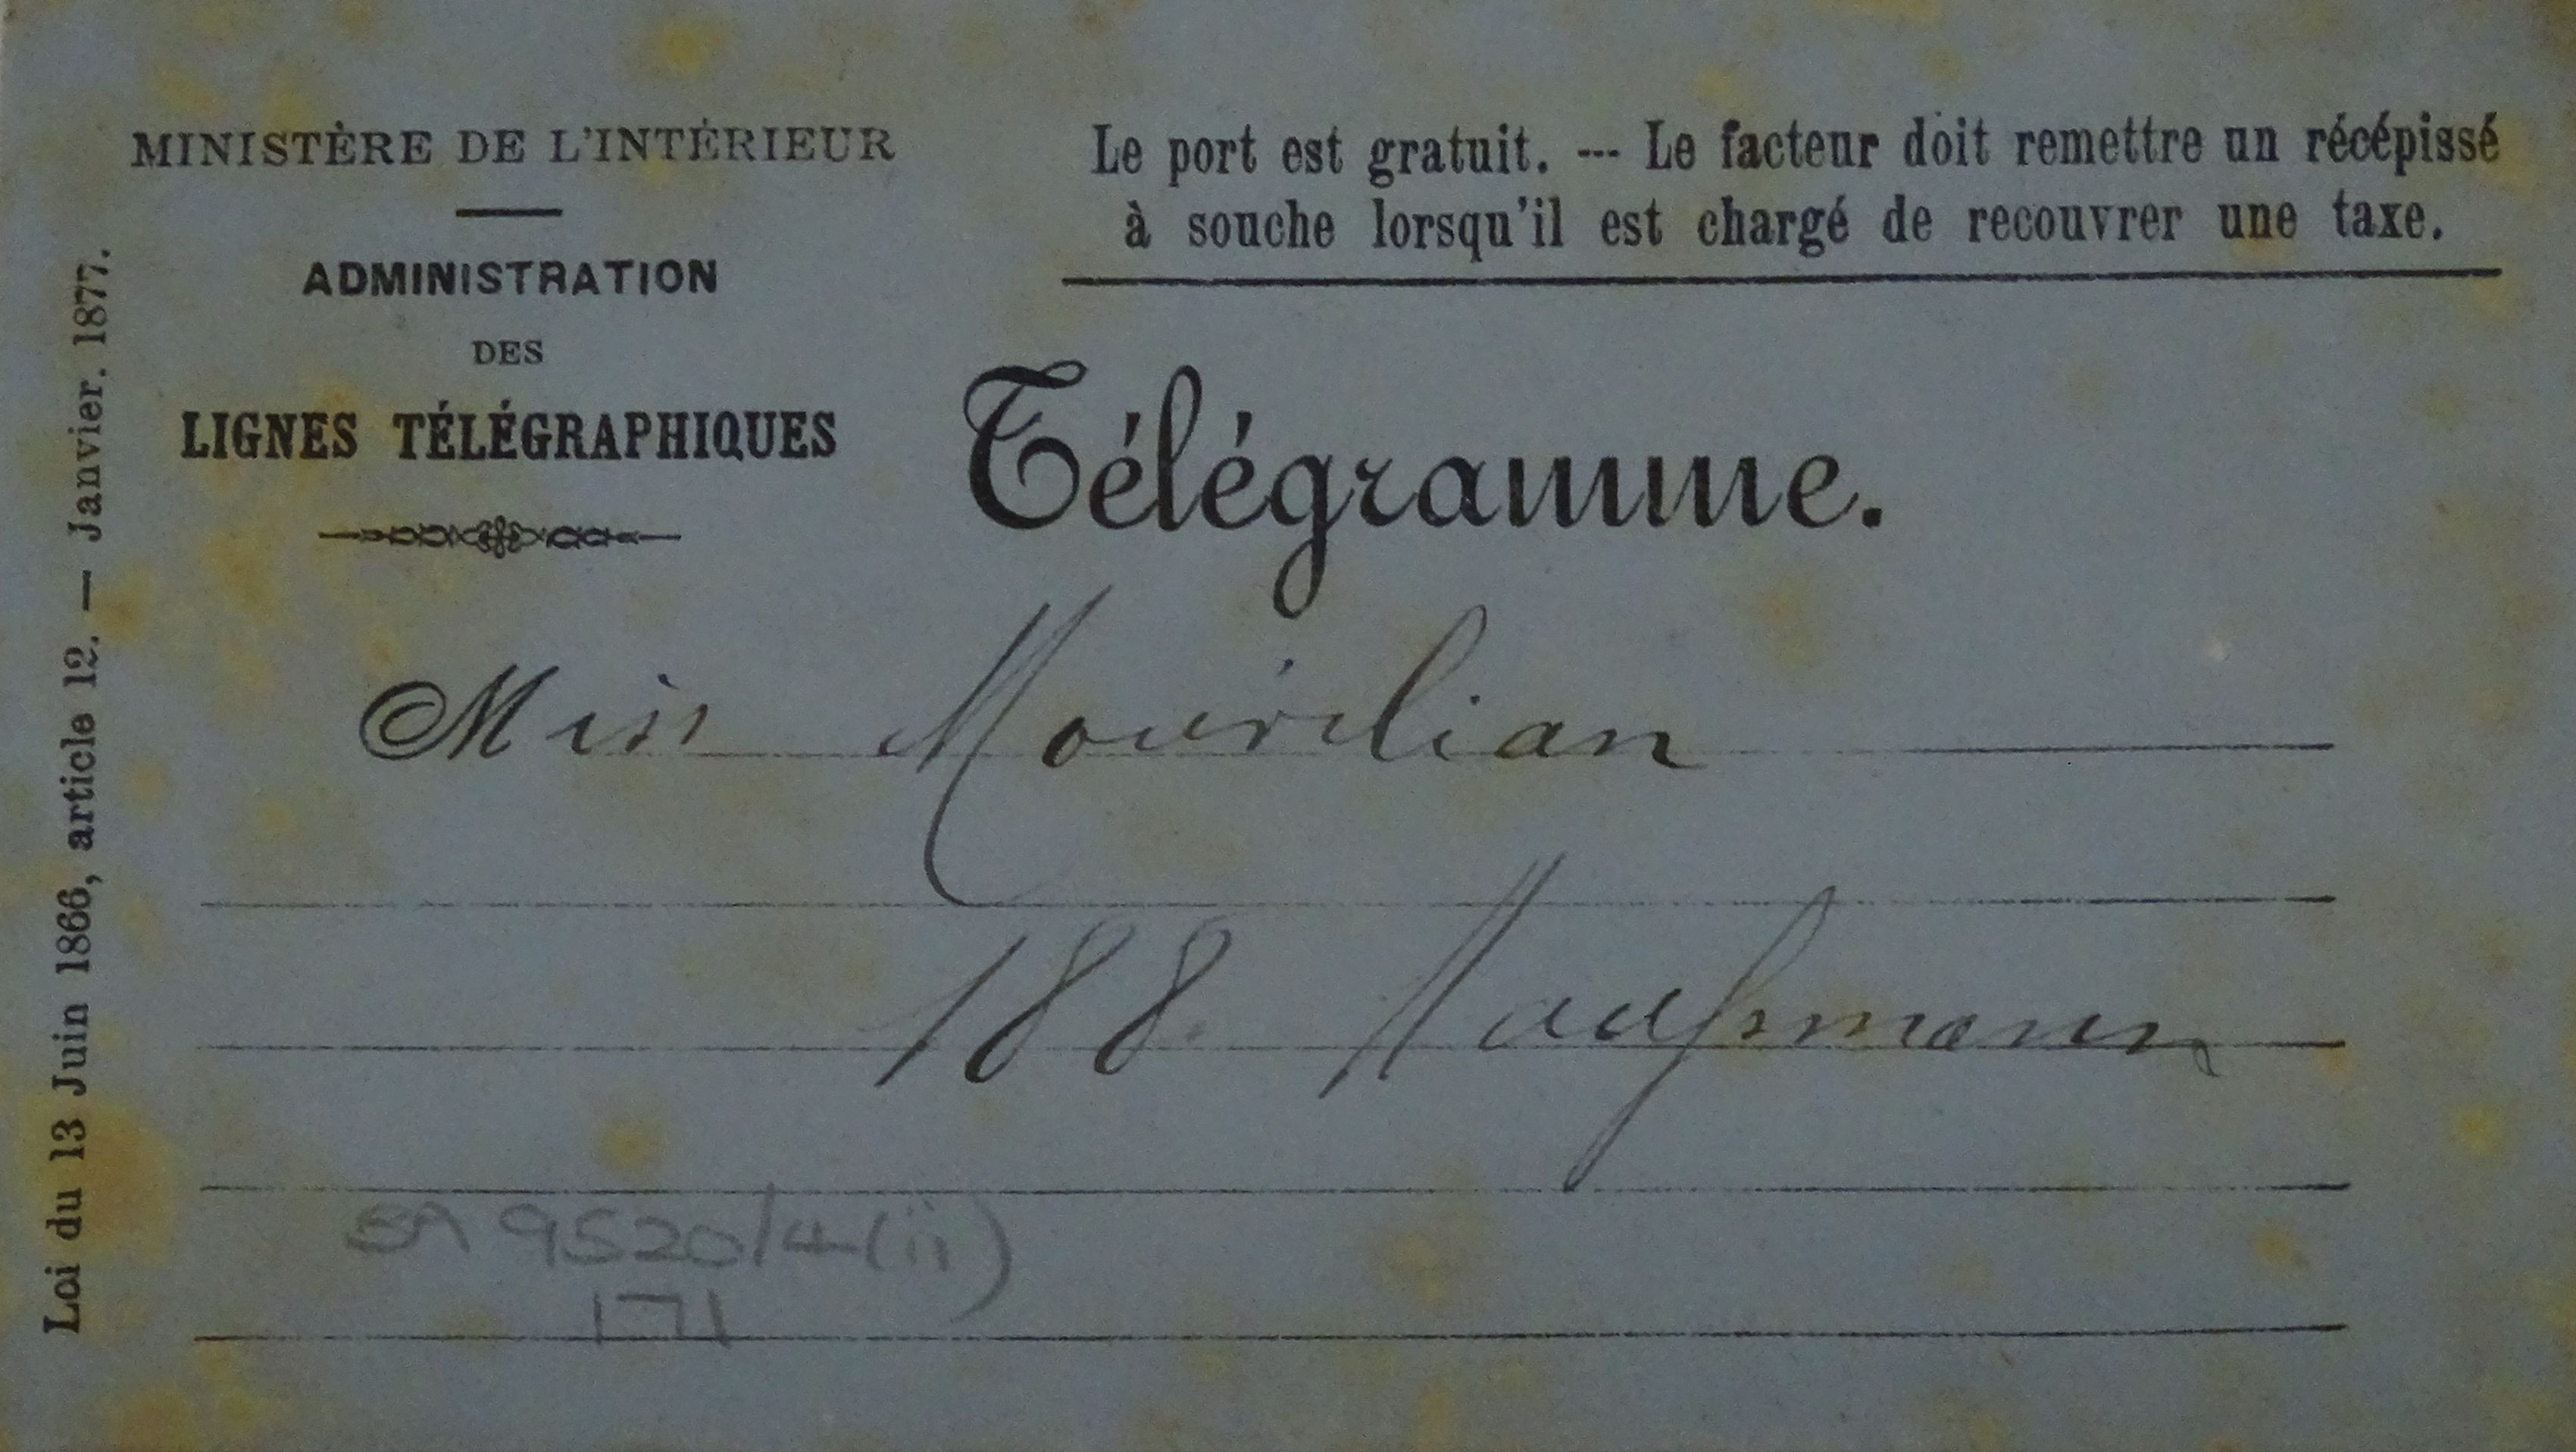 MINISTÈRE DE L'INTÉRIEUR
ADMINISTRATION
DES
LIGNES TÉLÉGRAPHIQUES
Le port est gratuit. --- Le facteur doit remettre un récépissé
à souche lorsqu'il est chargé de recouvrer une taxe.
Télégramme.
Miss Mourilian
188 Haussmann
SA 9520/4(ii)
171
Loi du 13 Juin 1866, article 12. — Janvier. 1877.